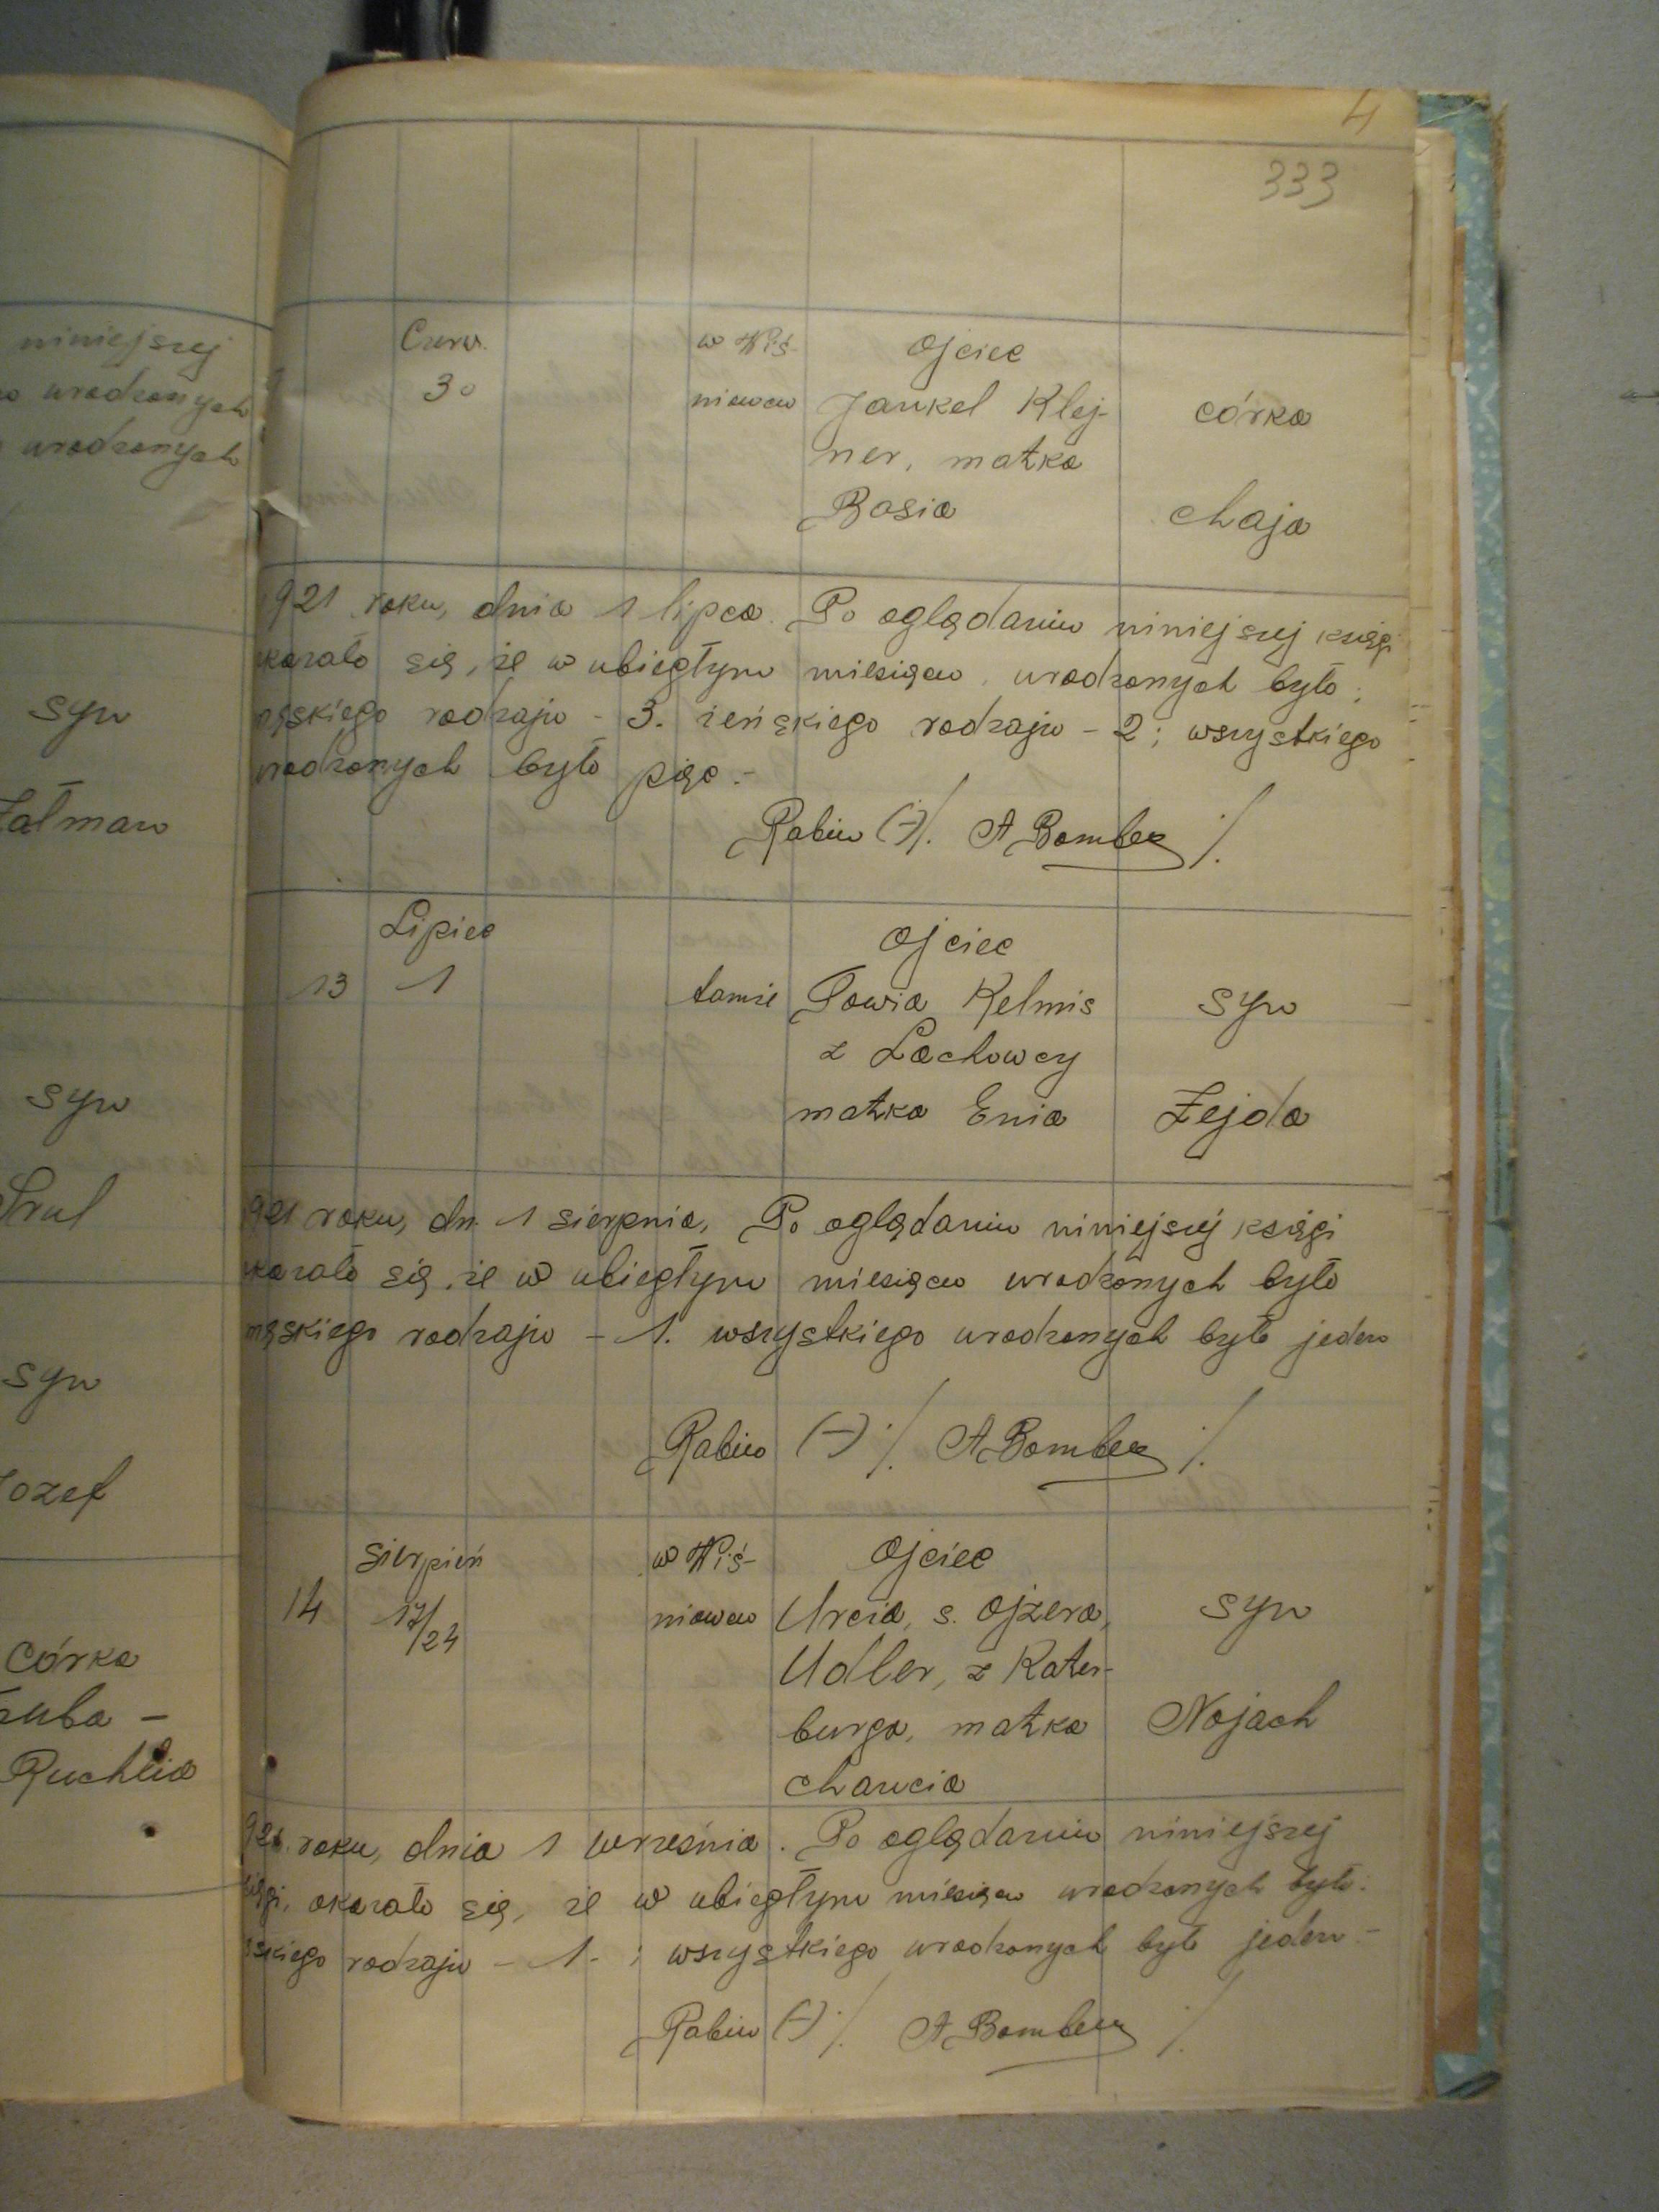 4
333
niniejszej
urodzonych
urodzonych
syn
Załman
syn
Srul
syn
Jozef
córka
Ruchlia
Czerw. w Wiś- Ojciec
30 niowcu Jankel Klej- córka
ner, matka
Basia Chaja
921 roku, dnia 1 lipca. Po oglądaniu niniejszej księgi
okazało się, że w ubiegłym miesiącu, urodzonych było:
męskiego rodzaju - 3. żeńskiego rodzaju - 2; wszystkiego
urodzonych było pięc.-
Rabin (-)/. A Bomber /.
Lipiec Ojciec
13 1 tamże Towia Kelmis syn
z Lachowcy
matka Enia Zejda
921 roku, dn. 1 sierpnia, Po oglądaniu niniejszej księgi
okazało się, że w ubiegłym miesiącu urodzonych było
męskiego rodzaju - 1. wszystkiego urodzonych było jeden
Rabin (-) /. A Bomber /.
Sierpień w Wiś- Ojciec
14 17/24 niowcu Urcia, s. Ojzera, syn
Udler, z Kater-
burga, matka Nojach
Chancia
921 roku, dnia 1 września. Po oglądaniu niniejszej
księgi, okazało się, że w ubiegłym miesiącu urodzonych było:
męskiego rodzaju - 1- ; wszystkiego urodzonych było jeden.-
Rabin (-) /. A Bomber /.